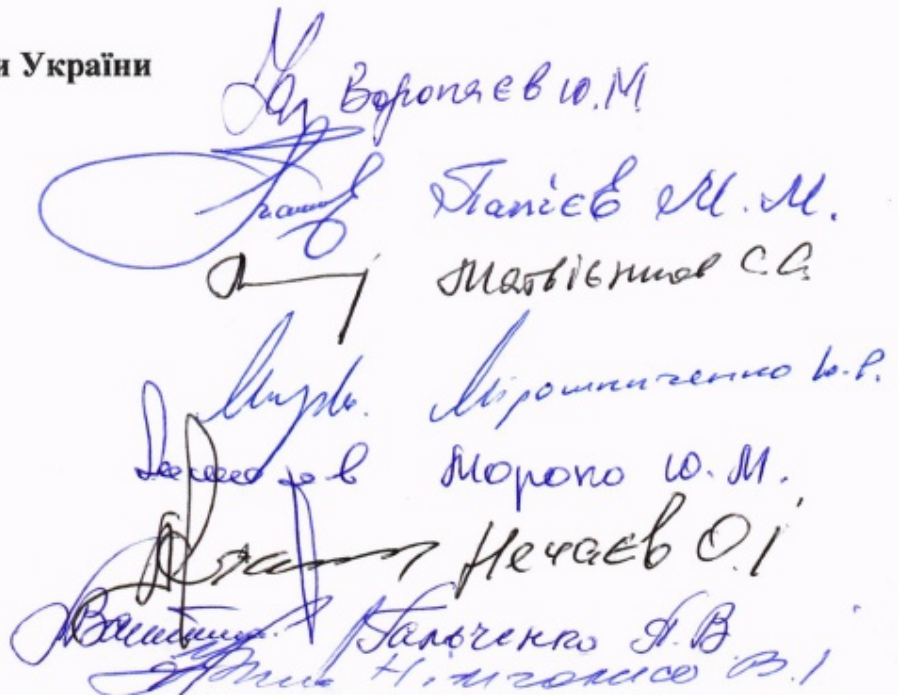 и України
Воропаєв Ю.М
Папієв М.М.
Матвієнков С.А
Мірошниченко Ю.Р.
Мороко Ю.М.
Нечаєв О.І
Гальченко А.В
В.І